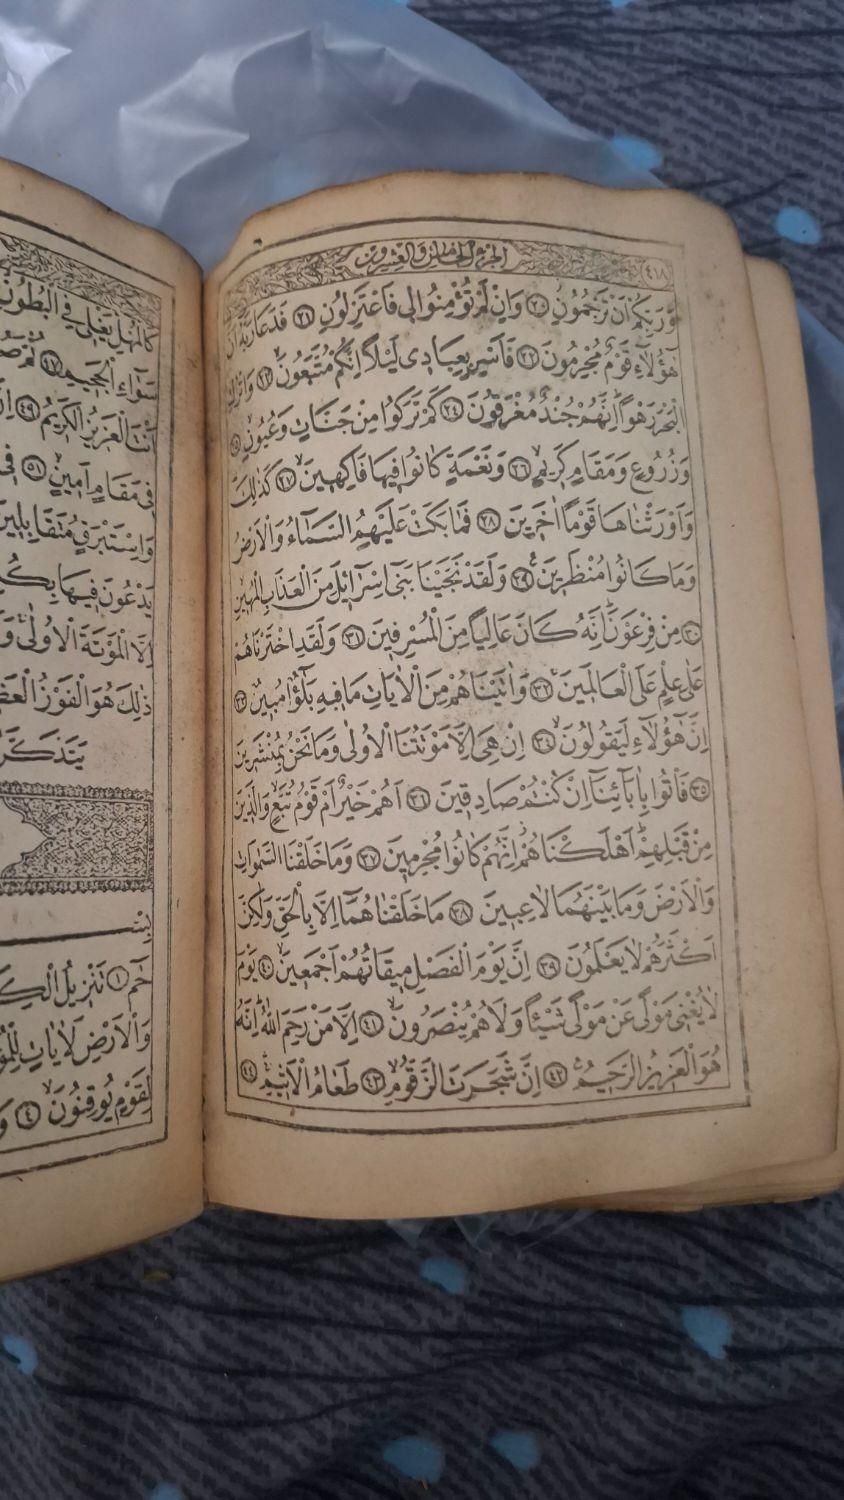 ٤١٨
الجزء الخامس والعشرون
وَرَبِّكُمْ اَنْ تَرْجُمُونِ ٢٠ وَاِنْ لَمْ تُؤْمِنُوا لِى فَاعْتَزِلُونِ ٢١ فَدَعَا رَبَّهُ اَنَّ
هٰٓؤُلَاۤءِ قَوْمٌ مُجْرِمُونَ ٢٢ فَاَسْرِ بِعِبَادِى لَيْلًا اِنَّكُمْ مُتَّبَعُونَ ٢٣ وَاتْرُكِ
الْبَحْرَ رَهْوًا اِنَّهُمْ جُنْدٌ مُغْرَقُونَ ٢٤ كَمْ تَرَكُوا مِنْ جَنَّاتٍ وَعُيُونٍ ٢٥
وَزُرُوعٍ وَمَقَامٍ كَرِيمٍ ٢٦ وَنَعْمَةٍ كَانُوا فِيهَا فَاكِهِينَ ٢٧ كَذٰلِكَ
وَاَوْرَثْنَاهَا قَوْمًا اٰخَرِينَ ٢٨ فَمَا بَكَتْ عَلَيْهِمُ السَّمَاۤءُ وَالْاَرْضُ
وَمَا كَانُوا مُنْظَرِينَ ٢٩ وَلَقَدْ نَجَّيْنَا بَنِى اِسْرَاۤئِلَ مِنَ الْعَذَابِ الْمُهِينِ
٣٠ مِنْ فِرْعَوْنَ اِنَّهُ كَانَ عَالِيًا مِنَ الْمُسْرِفِينَ ٣١ وَلَقَدِ اخْتَرْنَاهُمْ
عَلٰى عِلْمٍ عَلَى الْعَالَمِينَ ٣٢ وَاٰتَيْنَاهُمْ مِنَ الْاٰيَاتِ مَا فِيهِ بَلٰۤؤٌا مُبِينٌ ٣٣
اِنَّ هٰٓؤُلَاۤءِ لَيَقُولُونَ ٣٤ اِنْ هِىَ اِلَّا مَوْتَتُنَا الْاُولٰى وَمَا نَحْنُ بِمُنْشَرِينَ
٣٥ فَأْتُوا بِاٰبَاۤئِنَاۤ اِنْ كُنْتُمْ صَادِقِينَ ٣٦ اَهُمْ خَيْرٌ اَمْ قَوْمُ تُبَّعٍ وَالَّذِينَ
مِنْ قَبْلِهِمْ اَهْلَكْنَاهُمْ اِنَّهُمْ كَانُوا مُجْرِمِينَ ٣٧ وَمَا خَلَقْنَا السَّمٰوَاتِ
وَالْاَرْضَ وَمَا بَيْنَهُمَا لَاعِبِينَ ٣٨ مَا خَلَقْنَاهُمَاۤ اِلَّا بِالْحَقِّ وَلٰكِنَّ
اَكْثَرَهُمْ لَا يَعْلَمُونَ ٣٩ اِنَّ يَوْمَ الْفَصْلِ مِيقَاتُهُمْ اَجْمَعِينَ ٤٠ يَوْمَ
لَا يُغْنِى مَوْلًى عَنْ مَوْلًى شَيْـًٔا وَلَا هُمْ يُنْصَرُونَ ٤١ اِلَّا مَنْ رَحِمَ اللّٰهُ اِنَّهُ
هُوَ الْعَزِيزُ الرَّحِيمُ ٤٢ اِنَّ شَجَرَتَ الزَّقُّومِ ٤٣ طَعَامُ الْاَثِيمِ ٤٤
كَالْمُهْلِ يَغْلِى فِى الْبُطُونِ
سَوَاۤءِ الْجَحِيمِ ٤٧ ثُمَّ
اَنْتَ الْعَزِيزُ الْكَرِيمُ ٤٩
فِى مَقَامٍ اَمِينٍ ٥١ فِى
وَاِسْتَبْرَقٍ مُتَقَابِلِينَ
يَدْعُونَ فِيهَا بِكُلِّ
اِلَّا الْمَوْتَةَ الْاُولٰى
ذٰلِكَ هُوَ الْفَوْزُ
حٰمۤ ١ تَنْزِيلُ
وَالْاَرْضِ لَاٰيَاتٍ
لِقَوْمٍ يُوقِنُونَ ٤